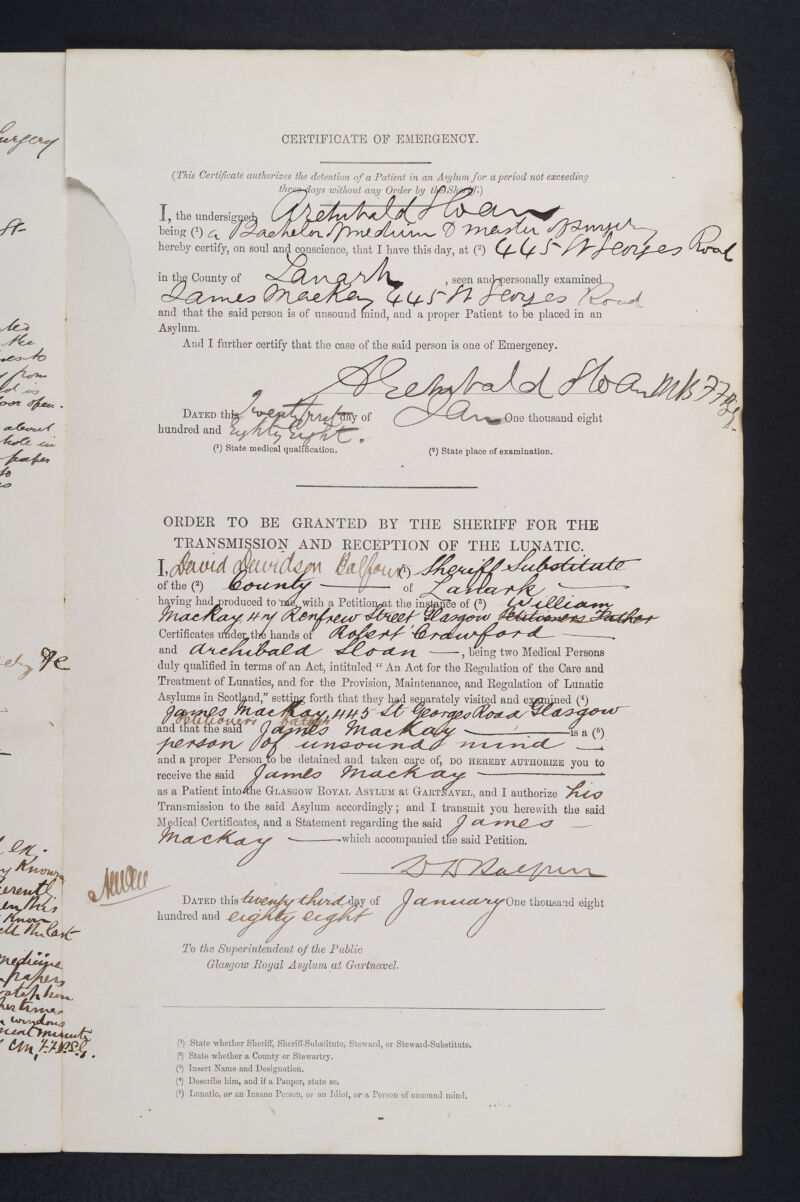 urgery
St
CERTIFICATE OF EMERGENCY.
(This Certificate authorizes the detention of a Patient in an Asylum for a period not exceeding
three days without any Order by the Sheriff.)
I, the undersigned, Archibald Sloan
being (¹) a Bachelor of medicine & master of surgery
hereby certify, on soul and conscience, that I have this day, at (²) 445 St Georges Road
in the County of Lanark, seen and personally examined
James Mackay 445 St Georges Road
and that the said person is of unsound mind, and a proper Patient to be placed in an
Asylum.
And I further certify that the case of the said person is one of Emergency.
Archibald Sloan MB
DATED this Twenty first day of Jan One thousand eight
hundred and Eighty Eight.
(¹) State medical qualification. (²) State place of examination.
ORDER TO BE GRANTED BY THE SHERIFF FOR THE
TRANSMISSION AND RECEPTION OF THE LUNATIC.
I, David Davidson Balfour (¹) Sheriff Substitute
of the (²) County of Lanark
having had produced to me, with a Petition at the instance of (³) William
Mackay, 47 Renfrew Street, Glasgow Petitioners Father
Certificates under the hands of Robert Crawford
and Archibald Sloan, being two Medical Persons
duly qualified in terms of an Act, intituled “An Act for the Regulation of the Care and
Treatment of Lunatics, and for the Provision, Maintenance, and Regulation of Lunatic
Asylums in Scotland,” setting forth that they had separately visited and examined (⁴)
James Mackay, 445 St Georges Road Glasgow
Petitioners Father
and that the said James Mackay is a (⁵)
person of unsound mind
and a proper Person to be detained and taken care of, DO HEREBY AUTHORIZE you to
receive the said James Mackay
as a Patient into the GLASGOW ROYAL ASYLUM at GARTNAVEL, and I authorize his
Transmission to the said Asylum accordingly; and I transmit you herewith the said
Medical Certificates, and a Statement regarding the said James
Mackay which accompanied the said Petition.
D D Balfour
DATED this twenty third day of January One thousand eight
hundred and eighty eight
To the Superintendent of the Public
Glasgow Royal Asylum at Gartnavel.
(¹) State whether Sheriff, Sheriff-Substitute, Steward, or Steward-Substitute.
(²) State whether a County or Stewartry.
(³) Insert Name and Designation.
(⁴) Describe him, and if a Pauper, state so.
(⁵) Lunatic, or an Insane Person, or an Idiot, or a Person of unsound mind.